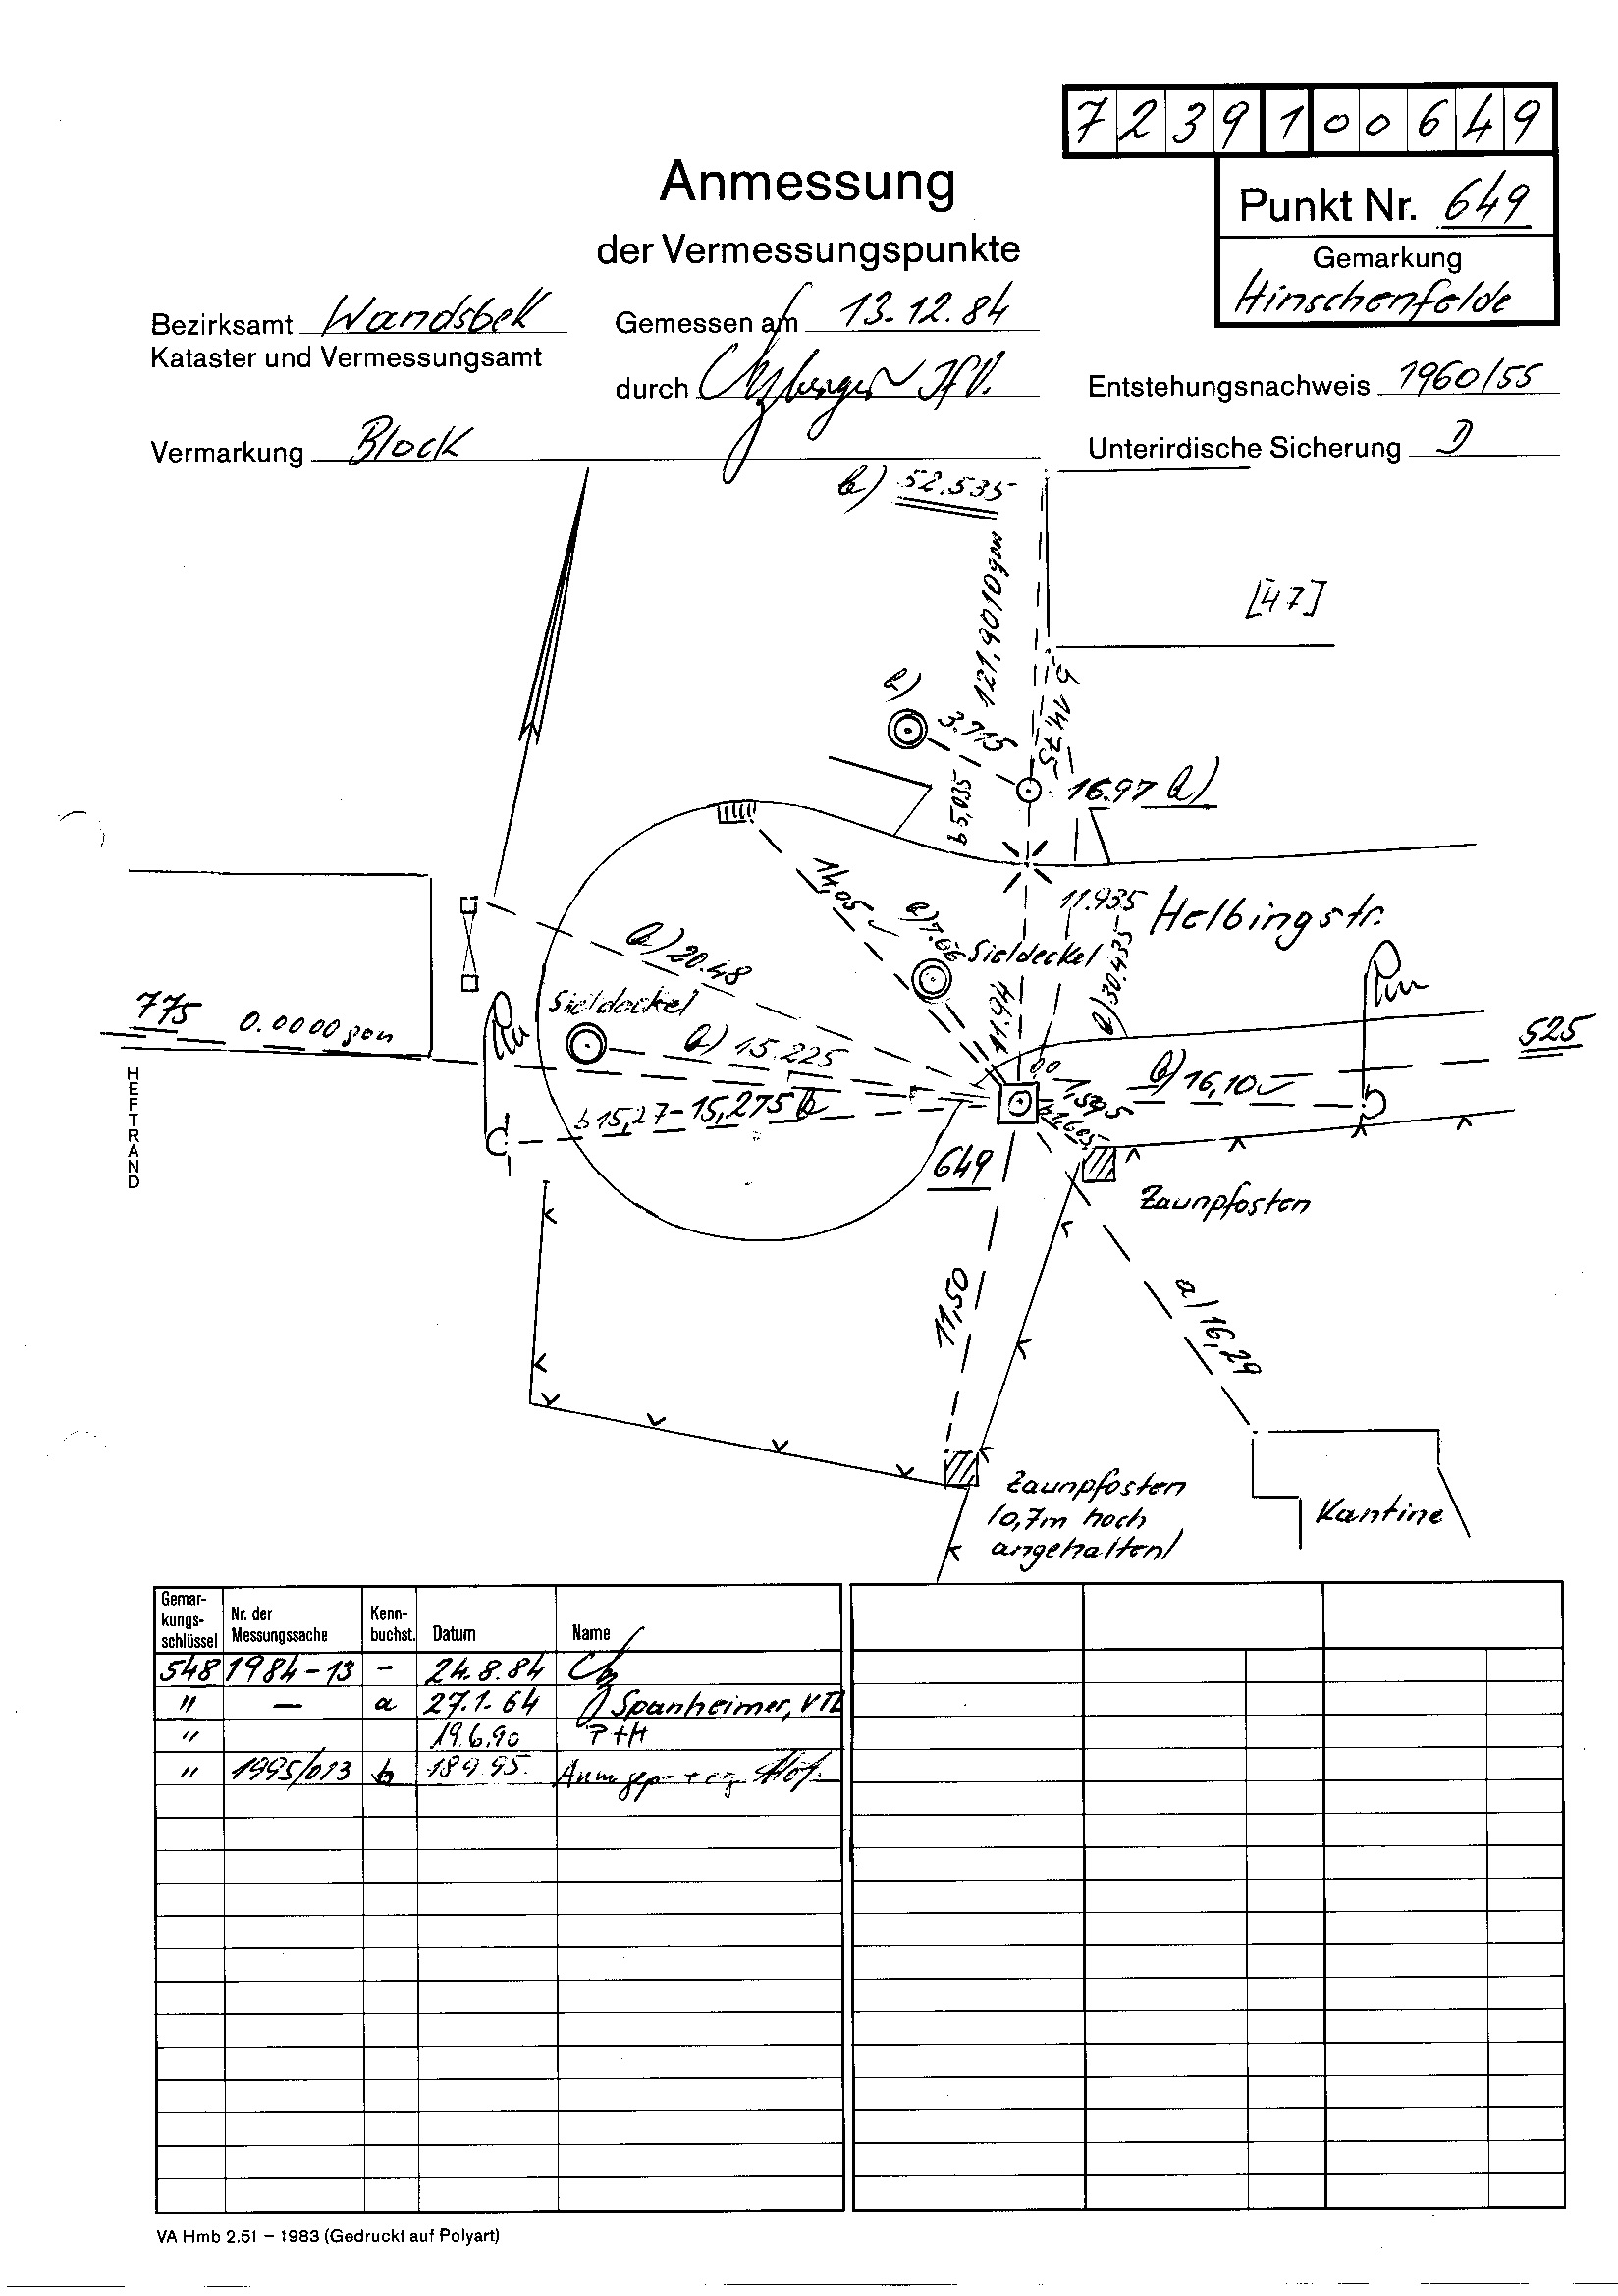 7239100649
Anmessung
der Vermessungspunkte
Punkt Nr. 649
Gemarkung
Hinschenfelde
Bezirksamt Wandsbek
Kataster und Vermessungsamt
Gemessen am 13.12.84
durch
Entstehungsnachweis 1960/55
Vermarkung Block
Unterirdische Sicherung D
b) 52.535
121.9010 gon
[47]
b)
3.715
b 14.75
b 5,035
16.97 b)
14,05
11.935
Helbingstr.
b) 20.48
Sieldeckel
11.94
b) 30.435
775
0.0000 gon
Sieldeckel
b) 15.225
525
b) 16,10
b 15,27-15,275 b
HEFTRAND
649
Zaunpfosten
11,50
a) 16,29
Zaunpfosten
(0,7m hoch
angehalten)
Kantine
Gemar-
kungs-
schlüssel
Nr. der
Messungssache
Kenn-
buchst.
Datum
Name
548 1984-13 - 24.8.84
" — a 27.1.64 Spanheimer, VTL
" 19.6.90 P+H
" 1995/013 b 18.9.95.
VA Hmb 2.51 – 1983 (Gedruckt auf Polyart)